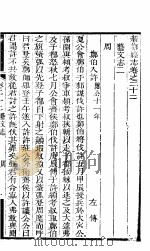 縣志卷之二十二
藝文志二
周
鄭伯入許 隱公十一年 左傳
夏公會鄭伯于郲謀伐許也鄭伯將伐許五月甲辰授兵於大宮公
孫閼與潁考叔爭車潁考叔挾輈以走子都拔棘以逐之及大逵弗
及子都怒秋七月公會齊侯鄭伯伐許庚辰傅于許潁考叔取鄭伯
之旗蝥弧以先登子都自下射之顛瑕叔盈又以蝥弧登周麾而呼
曰君登矣鄭師畢登壬午遂入許許莊公奔衛齊侯以許讓公公曰
君謂許不共故從君討之許既伏其罪矣雖君有命寡人弗敢與聞